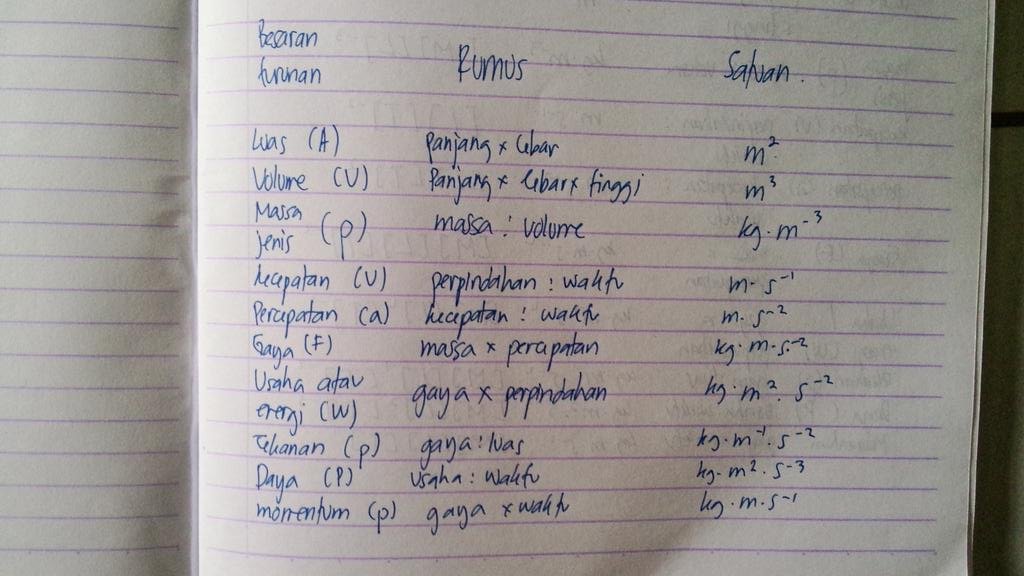 Besaran
turunan Rumus Satuan.
Luas (A) panjang x lebar m²
Volume (V) Panjang x lebar x tinggi m³
Massa
jenis (p) massa : volume kg · m⁻³
kecepatan (V) perpindahan : waktu m · s⁻¹
Percepatan (a) kecepatan : waktu m · s⁻²
Gaya (F) massa x percepatan kg · m · s⁻²
Usaha atau
energi (W) gaya x perpindahan kg · m² · s⁻²
Tekanan (p) gaya : luas kg · m⁻¹ · s⁻²
Daya (P) usaha : waktu kg · m² · s⁻³
momentum (p) gaya x waktu kg · m · s⁻¹